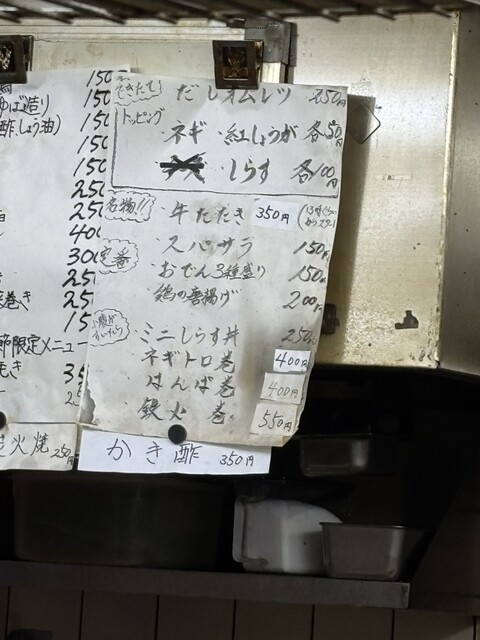 150
ゆば造り 150
酢しょう油) 150
150
150
250
250
400
300
250
巻き 250
150
節限定メニュー
焼き
火焼 250円
できたて!
だしオムレツ 250円
トッピング
・ネギ ・紅しょうが 各50円
・しらす 各100円
名物!!
・牛たたき 350円
定番
・スパサラ 150円
・おでん3種盛り 150円
・鶏の唐揚げ 200円
・ミニしらす丼 250円
ネギトロ巻 400円
はんぱ巻 400円
鉄火巻 550円
かき酢 350円